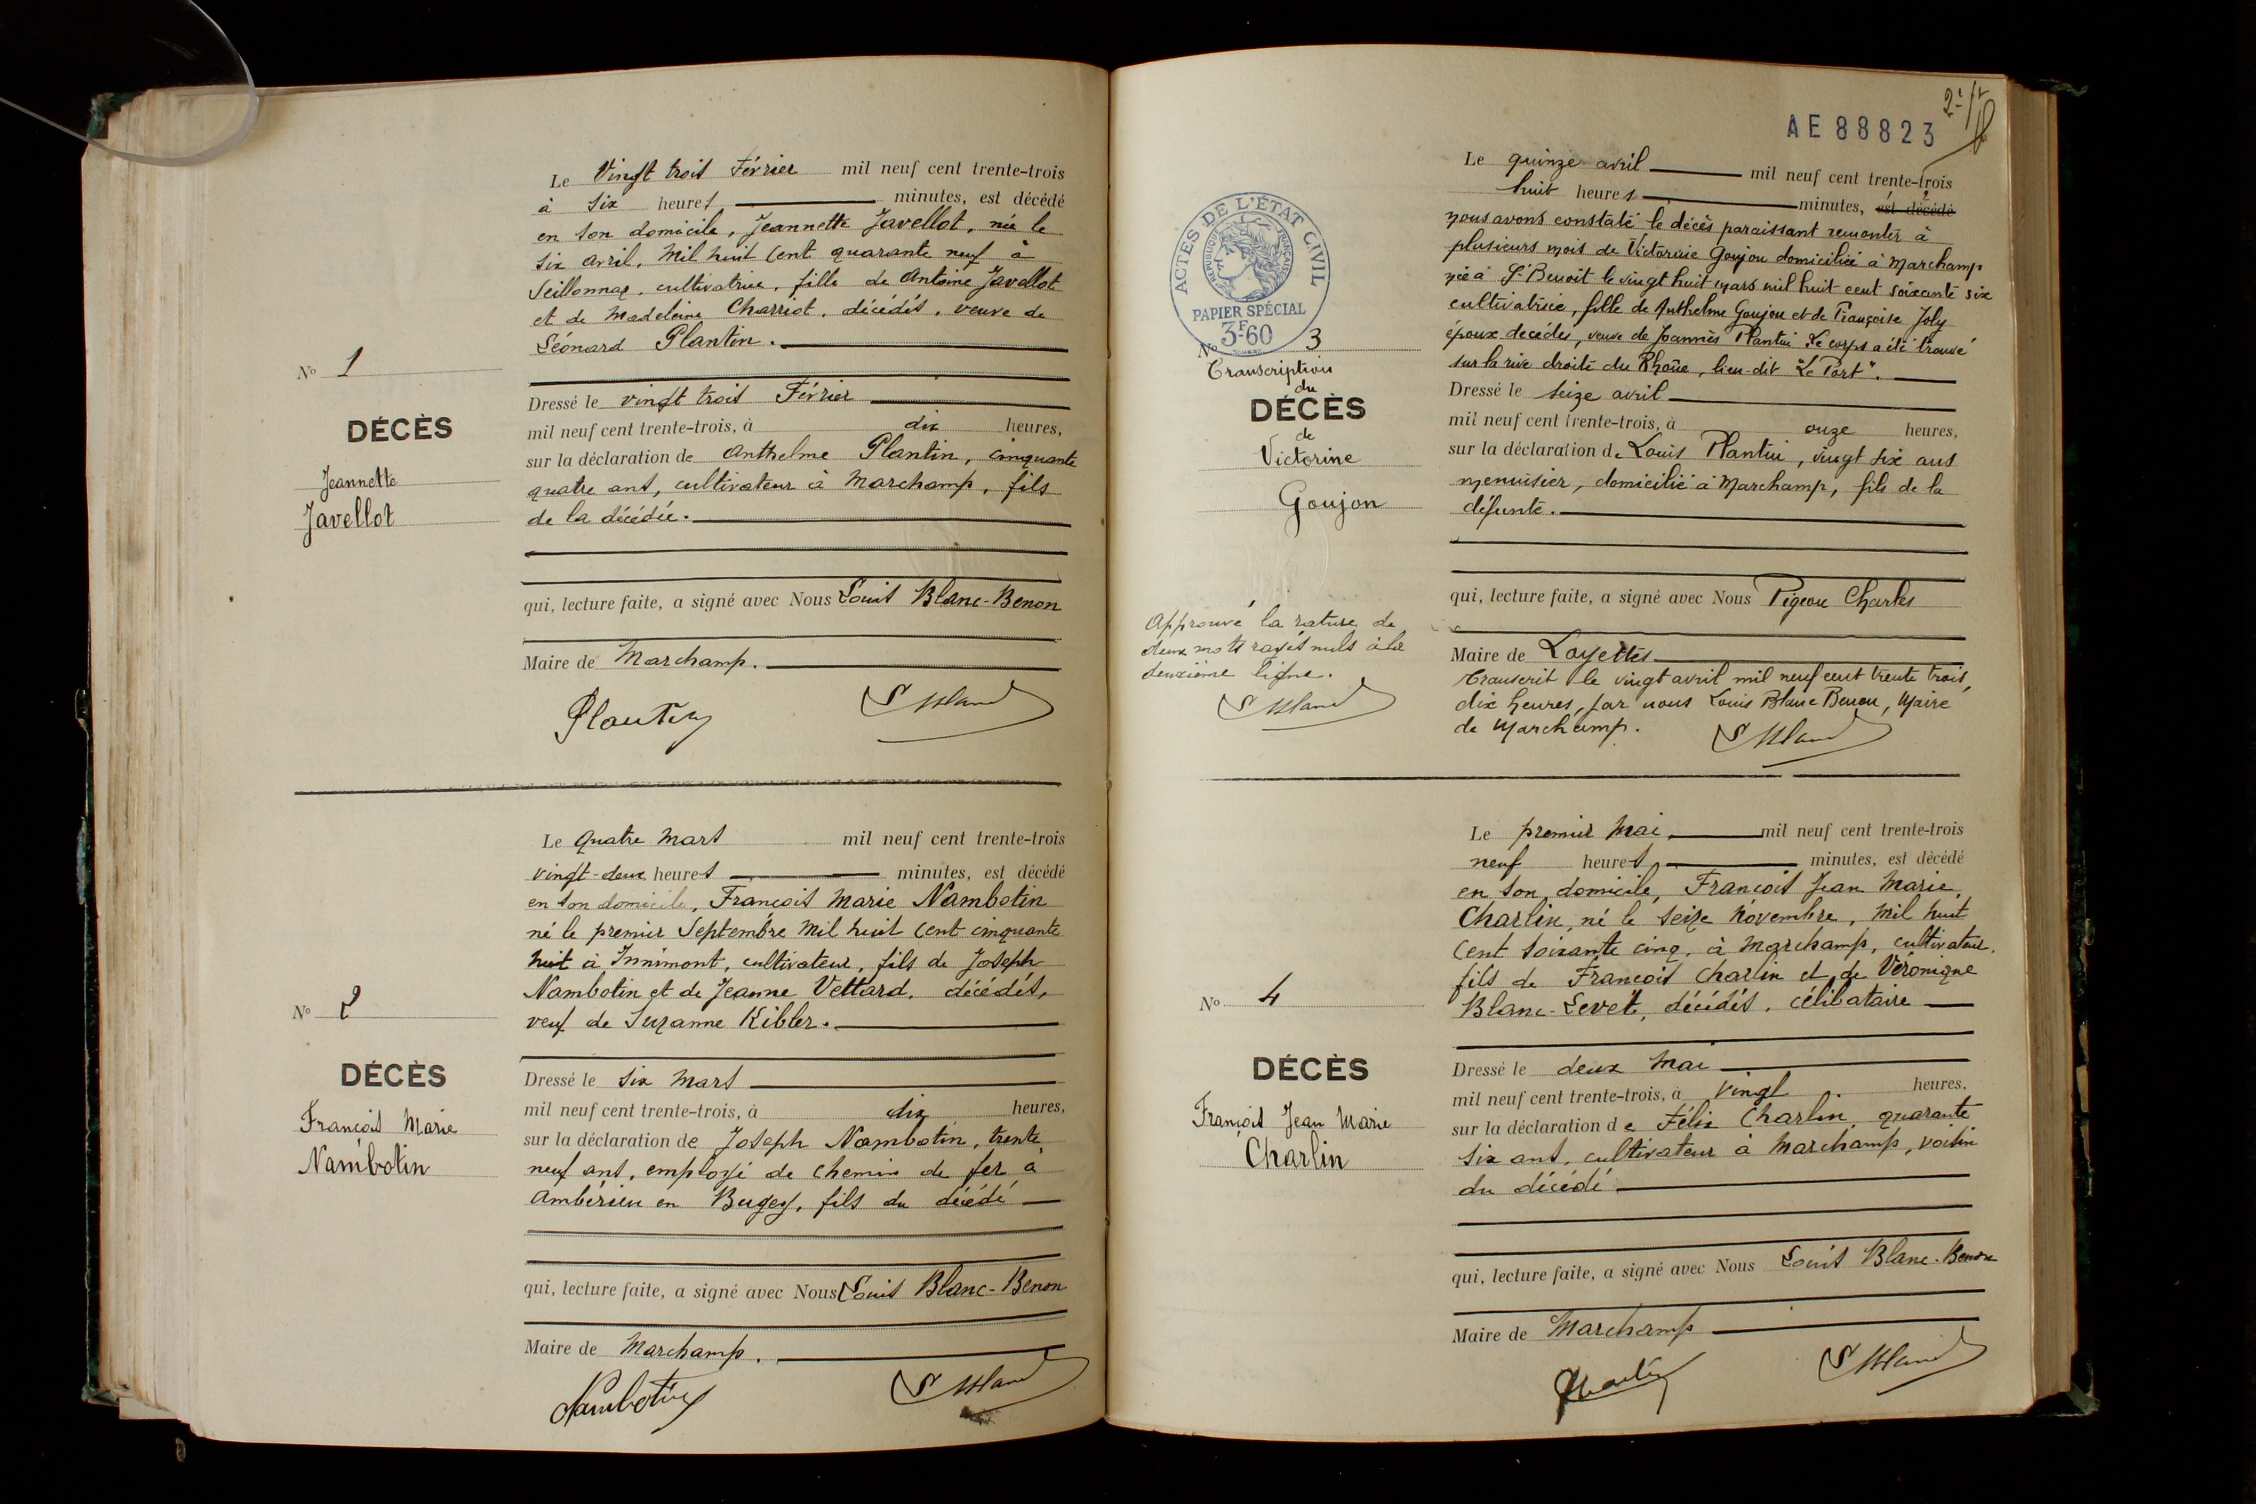 Le Vingt trois Février mil neuf cent trente-trois
à six heures minutes, est décédé
en son domicile, Jeannette Javellot, née le
six avril, mil huit cent quarante neuf à
Seillonnaz, cultivatrice, fille de Antoine Javellot
et de Madeleine Charriot, décédés, veuve de
Léonard Plantin.
N° 1
DÉCÈS
Jeannette
Javellot
Dressé le vingt trois Février
mil neuf cent trente-trois, à dix heures,
sur la déclaration de Anthelme Plantin, cinquante
quatre ans, cultivateur à Marchamp, fils
de la décédée.
qui, lecture faite, a signé avec Nous Louis Blanc-Benon
Maire de Marchamp.
Plantin
L Blanc
Le quatre mars mil neuf cent trente-trois
vingt-deux heures minutes, est décédé
en son domicile, François Marie Nambotin
né le premier Septembre mil huit cent cinquante
huit à Innimont, cultivateur, fils de Joseph
Nambotin et de Jeanne Vettard, décédés,
veuf de Suzanne Kibler.
N° 2
DÉCÈS
François Marie
Nambotin
Dressé le six mars
mil neuf cent trente-trois, à dix heures,
sur la déclaration de Joseph Nambotin, trente
neuf ans, employé de chemin de fer à
Ambérieu en Bugey, fils du décédé
qui, lecture faite, a signé avec Nous Louis Blanc-Benon
Maire de Marchamp.
Nambotin
L Blanc
AE 88823
ACTES DE L'ÉTAT CIVIL
RÉPUBLIQUE FRANÇAISE
PAPIER SPÉCIAL
3F60
Le quinze avril mil neuf cent trente-trois
huit heures minutes, est décédé
nous avons constaté le décès paraissant remonter à
plusieurs mois de Victorine Goujon domiciliée à Marchamp
née à St Benoit le vingt huit mars mil huit cent soixante six
cultivatrice, fille de Anthelme Goujon et de Françoise Joly
époux décédés, veuve de Joannès Plantin Le corps a été trouvé
sur la rive droite du Rhône, lieu-dit "Le Port".
N° 3
Transcription
du
DÉCÈS
de
Victorine
Goujon
Dressé le seize avril
mil neuf cent trente-trois, à onze heures,
sur la déclaration de Louis Plantin, vingt six ans
menuisier, domicilié à Marchamp, fils de la
défunte.
qui, lecture faite, a signé avec Nous Pigeon Charles
Approuvé la rature de
deux mots rayés nuls à la
deuxième ligne.
L Blanc
Maire de Loyettes
Transcrit le vingt avril mil neuf cent trente trois,
dix heures, par nous Louis Blanc Benon, Maire
de Marchamp.
L Blanc
Le premier Mai mil neuf cent trente-trois
neuf heures minutes, est décédé
en son domicile, François Jean Marie
Charlin, né le seize Novembre, mil huit
cent soixante cinq, à Marchamp, cultivateur,
fils de François Charlin et de Véronique
Blanc-Levet, décédés, célibataire
N° 4
DÉCÈS
François Jean Marie
Charlin
Dressé le deux Mai
mil neuf cent trente-trois, à vingt heures,
sur la déclaration de Félix Charlin quarante
six ans, cultivateur à Marchamp, voisin
du décédé
qui, lecture faite, a signé avec Nous Louis Blanc-Benon
Maire de Marchamp
Charlin
L Blanc